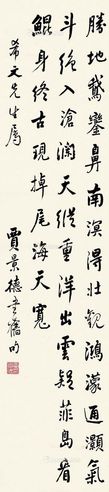 勝地鵝鑾鼻南溟得壯觀鴻濛通灝氣
斗絕入滄瀾天縱重洋出雲疑菲島看
鯤身終古現掉尾海天寬
希文先生屬
賈景德書舊